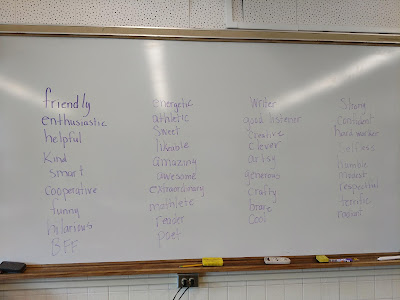 friendly
enthusiastic
helpful
Kind
smart
cooperative
funny
hilarious
BFF
energetic
athletic
Sweet
likeable
amazing
awesome
extraordinary
mathlete
reader
poet
Writer
good listener
creative
clever
artsy
generous
crafty
brave
Cool
Strong
confident
hard worker
selfless
humble
modest
respectful
terrific